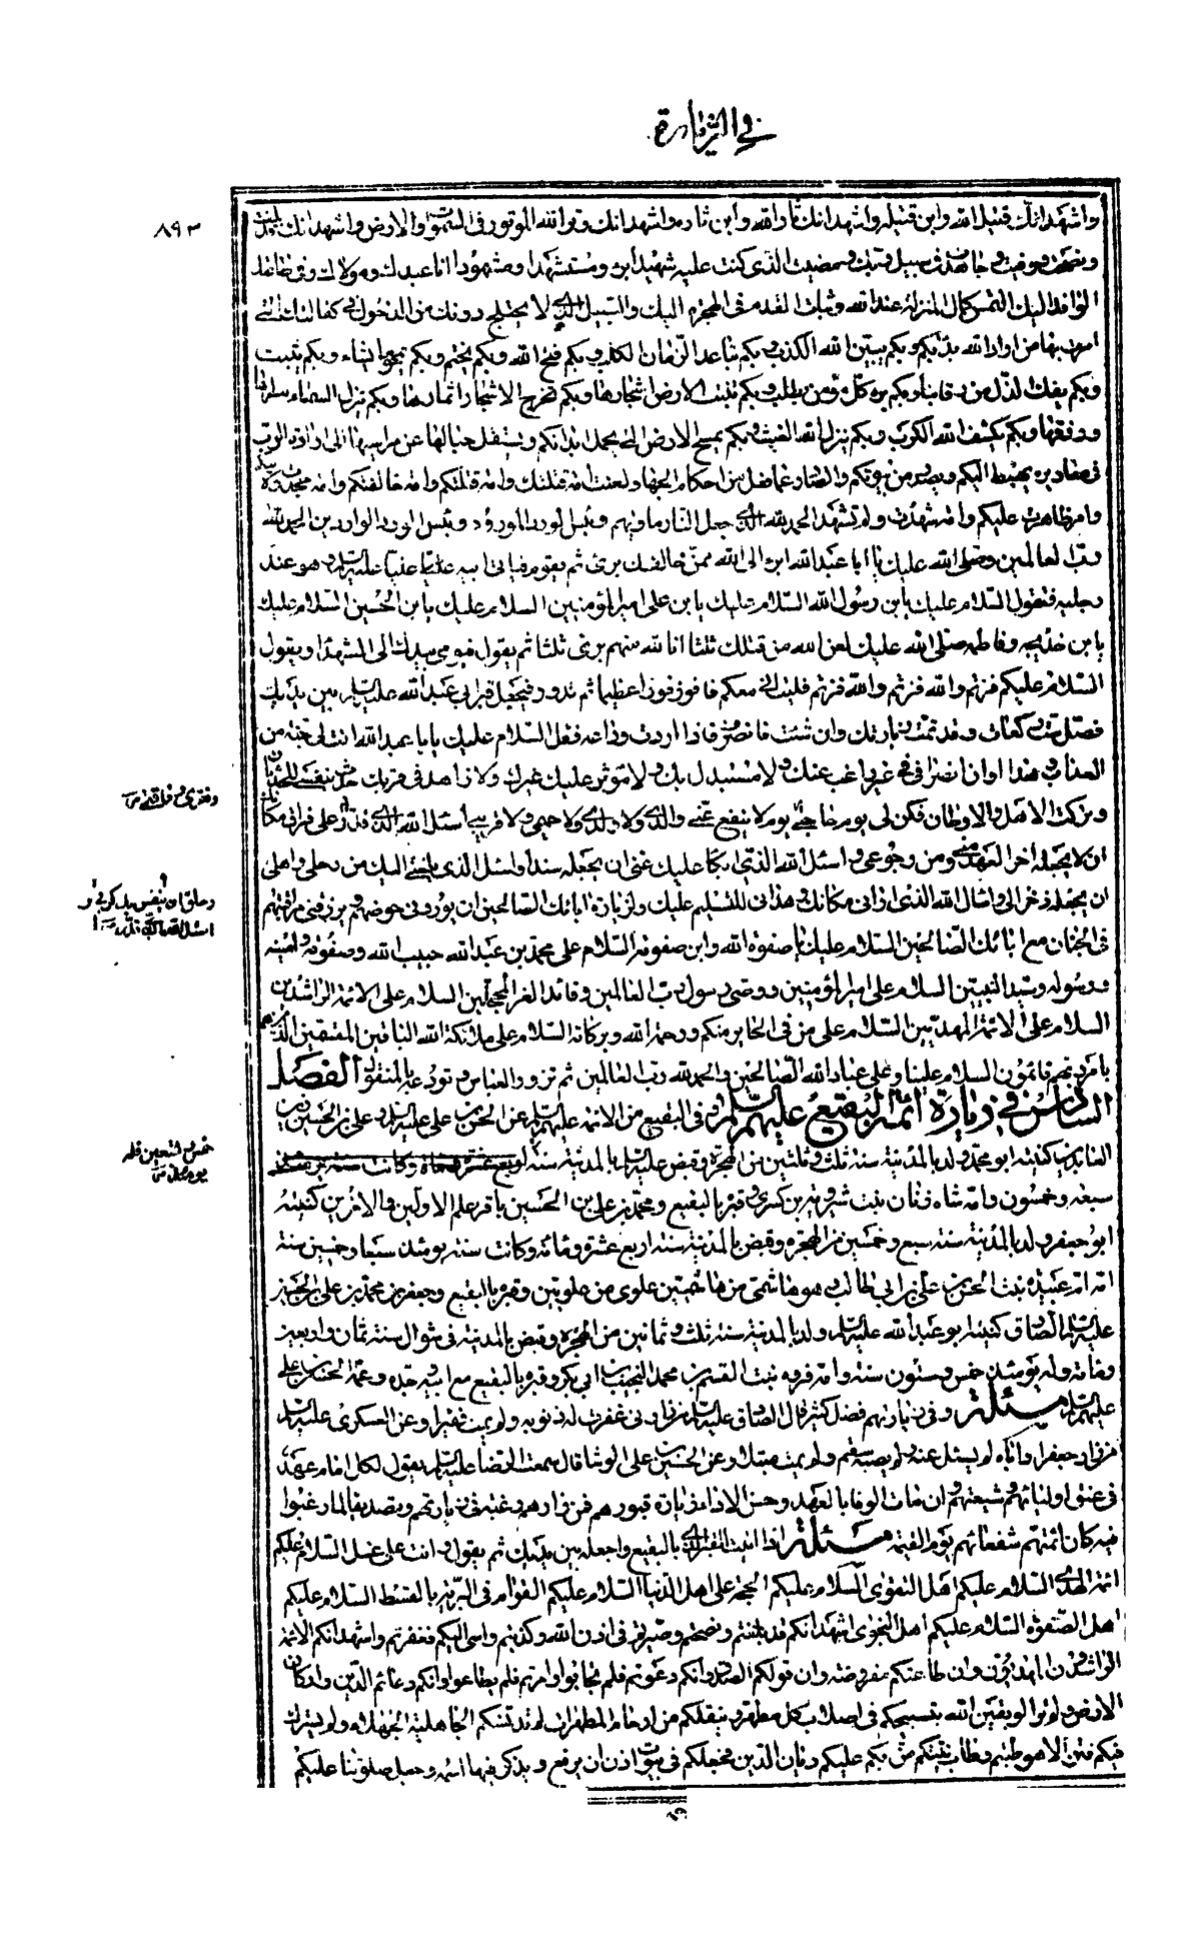 في الزيارة
٨٩٣
واشهد انك قتيل الله وابن قتيله واشهد انك ثار الله وابن ثاره واشهد انك وتر الله الموتور في السموات والارض واشهد انك بلغت
ونصحت ووفيت وجاهدت في سبيل ربك ومضيت للذي كنت عليه شهيدا ومستشهدا ومشهودا انا عبدك ومولاك وفي طاعتك
الوافد اليك التمس كمال المنزلة عند الله وثبات القدم في الهجرة اليك والسبيل الذي لا يختلج دونك من الدخول في كفالتك التي
امرت بها من اراد الله بدأ بكم وبكم يبين الله الكذب وبكم يباعد الزمان الكلب وبكم فتح الله وبكم يختم وبكم يمحو ما يشاء وبكم يثبت
وبكم يفك الذل من رقابنا وبكم يدرك ترة كل مؤمن يطلب وبكم تنبت الارض اشجارها وبكم تخرج الاشجار اثمارها وبكم تنزل السماء
ورزقها وبكم يكشف الله الكرب وبكم ينزل الله الغيث وبكم تسيخ الارض التي تحمل ابدانكم ويستقل جبالها عن مراسيها ارادة الرب
في مقادير اموره تهبط اليكم وتصدر من بيوتكم والصادر عما فصل من احكام العباد لعنت امة قتلتكم وامة خالفتكم وامة جحدت
وامة ظاهرت عليكم وامة شهدت ولم تستشهد الحمد لله الذي جعل النار ماواهم وبئس الورد المورود وبئس ورد الواردين الحمد لله
رب العالمين وصلى الله عليك يا ابا عبد الله ابرء الى الله ممن خالفك بريء ثم يقوم فياتي ابنه عليا عليه السلام وهو عند
رجليه فتقول السلام عليك يابن رسول الله السلام عليك يابن علي امير المؤمنين السلام عليك يابن الحسين السلام عليك
يابن خديجة وفاطمة صلى الله عليك لعن الله من قتلك ثلثا انا لله منهم بريء ثلثا ثم يقوم فيومي بيده الى الشهداء ويقول
السلام عليكم فزتم والله فزتم والله فزتم فليت اني معكم فافوز فوزا عظيما ثم تدور فتجعل قبر ابي عبد الله عليه السلام بين يديك
فصل ست ركعات وقد تمت زيارتك وان شئت فانصرف فاذا اردت وداعه فقل السلام عليك يابا عبد الله انت لي جنة من
العذاب وهذا اوان انصرافي غير راغب عنك ولا مستبدل بك ولا مؤثر عليك غيرك ولا زاهد في قربك جدت بنفسي للحدثان
وتركت الاهل والاوطان فكن لي يوم حاجتي يوم لا ينفع عني والدي ولا ولدي ولا حميمي ولا قريبي اسئل الله الذي قدر علي فراق مكانك
ان لا يجعله اخر العهد مني ومن رجوعي واسئل الله الذي ابكا عليك عيني ان يجعله سندا واسئل الذي بلغني اليك من رحلي واهلي
ان يجعله ذخرا لي واسال الله الذي اراني مكانك وهداني للتسليم عليك ولزيارة ابائك الصالحين ان يوردني حوضهم ويرزقني مرافقتهم
في الجنان مع ابائك الصالحين السلام عليك يا صفوة الله وابن صفوته السلام على محمد بن عبد الله حبيب الله وصفوته وامينه
ورسوله وسيد النبيين السلام على امير المؤمنين ووصي رسول رب العالمين وقائد الغر المحجلين السلام على الائمة الراشدين
السلام على الائمة المهديين السلام على من في الحاير منكم ورحمة الله وبركاته السلام على ملائكة الله الباقين المقيمين الذين هم
بامر ربهم قائمون السلام علينا وعلى عباد الله الصالحين والحمد لله رب العالمين ثم تزور العباس وتودعه بالمنقول الفصل
السادس في زيارة ائمة البقيع عليهم السلام وفي البقيع من الائمة عليهم السلام الحسن بن علي عليه السلام وعلي بن الحسين زين
العابدين كنيته ابو محمد ولد بالمدينة سنة ثلث وثلثين من الهجرة وقبض عليه السلام بالمدينة سنة
سبعة وخمسون وامه شاه زنان بنت شيرويه بن كسرى وقبره بالبقيع ومحمد بن علي بن الحسين باقر علم الاولين والاخرين كنيته
ابو جعفر ولد بالمدينة سنة سبع وخمسين من الهجرة وقبض بالمدينة سنة اربع عشرة ومائة وكانت سنه يومئذ سبعا وخمسين سنة
امه ام عبيدة بنت الحسن بن علي بن ابي طالب وهو هاشمي من هاشميين علوي من علويين وقبره بالبقيع وجعفر بن محمد بن علي بن الحسين
عليه السلام الصادق كنيته ابو عبد الله عليه السلام ولد بالمدينة سنة ثلث وثمانين من الهجرة وقبض بالمدينة في شوال سنة ثمان واربعين
ومائة وله يومئذ خمس وستون سنة وامه فروة بنت القسم بن محمد النجيب ابن ابي بكر وقبره بالبقيع مع ابيه وجده وعمه الحسن بن علي
عليهم السلام مسئلة وفي زيارتهم فضل كثير قال الصادق عليه السلام من زارني غفرت له ذنوبه ولم يمت فقيرا وعن العسكري عليه السلام
من زار جعفرا واباه لم يشتك عينه ولم يصبه سقم ولم يمت مبتلا وعن الحسن بن علي الوشا قال سمعت الرضا عليه السلام يقول لكل امام عهد
في عنق اوليائهم وشيعتهم وان من الوفا بالعهد وحسن الاداء زيارة قبورهم فمن زارهم رغبة في زيارتهم وتصديقا لما رغبوا
فيه كان ائمتهم شفعائهم يوم القيمة مسئلة اذا اتيت القبر الذي بالبقيع واجعله بين يديك ثم يقول وانت على غسل السلام عليكم
ائمة الهدى السلام عليكم اهل التقوى السلام عليكم الحجة على اهل الدنيا السلام عليكم القوام في البرية بالقسط السلام عليكم
اهل الصفوة السلام عليكم اهل النجوى اشهد انكم قد بلغتم ونصحتم وصبرتم في ذات الله وكذبتم واسئ اليكم فغفرتم واشهد انكم الائمة
الراشدون المهديون وان طاعتكم مفروضة وان قولكم الصدق وانكم دعوتم فلم تجابوا وامرتم فلم تطاعوا وانكم دعائم الدين واركان
الارض ولم تزالوا بعين الله ينسخكم في اصلاب كل مطهر وينقلكم من ارحام المطهرات لم تدنسكم الجاهلية الجهلاء ولم تشرك
فيكم فتن الاهواء طبتم وطاب منبتكم من بكم علينا ديان الدين فجعلكم في بيوت اذن ان ترفع ويذكر فيها اسمه وجعل صلوتنا عليكم